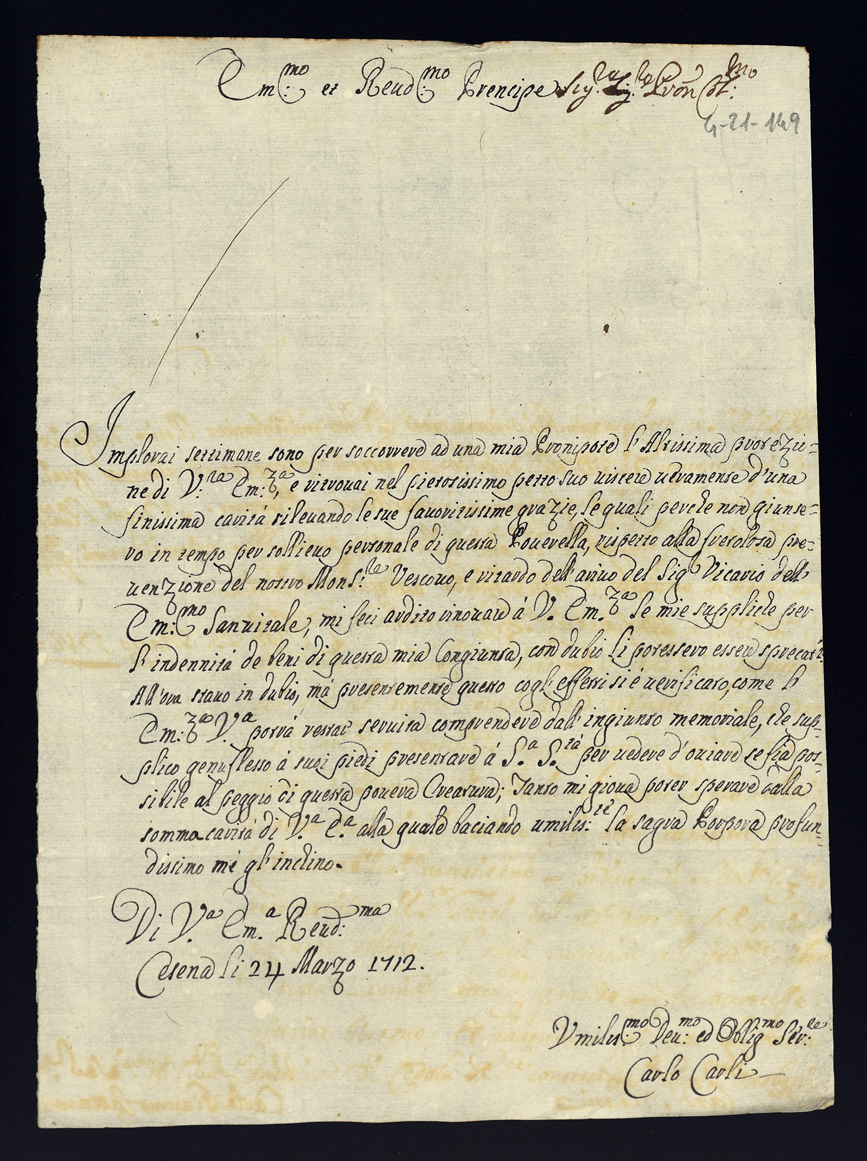 Em:mo et Reud:mo Prencipe Sig.re Sig.re Pron Col:mo
4-21-149
Implorai settimane sono per soccorrere ad una mia Pronipote l'Altissima protezio=
ne di V:ra Em:za, e ritrouai nel pietosissimo petto suo uiscere ueramente d'una
finissima carità rileuando le sue fauoritissime grazie, le quali perche non giunse=
ro in tempo per sollieuo personale di questa Pouerella, rispetto alla frettolosa pre=
uenzione del nostro Mons:re Vescouo, e ritardo dell'arriuo del Sig.r Vicario dell'
Em:mo Sanuitale, mi feci ardito rinouare á V. Em.za le mie suppliche per
l'indennitá de beni di questa mia Congiunta, con dubio li potessero essere sprecati.
All'ora stauo in dubio, má presentemente questo cogl'effetti si é uerificato, come l'
Em:za V.a potrá restar seruita comprendere dall'ingiunto memoriale, che sup=
plico genuflesso á suoi piedi presentare á S.a S.tá per uedere d'ouiare se sia pos=
sibile al peggio di questa pouera Creatura; Tanto mi gioua poter sperare dalla
somma carità di V.a E.a alla quale baciando umilis:te la sagra Porpora profun=
dissimo mé gl'inclino.
Di V.a Em.a Reud:ma
Cesena li 24 Marzo 1712.
Vmilis:mo Deu:mo ed Oblig:mo Ser:re
Carlo Carli